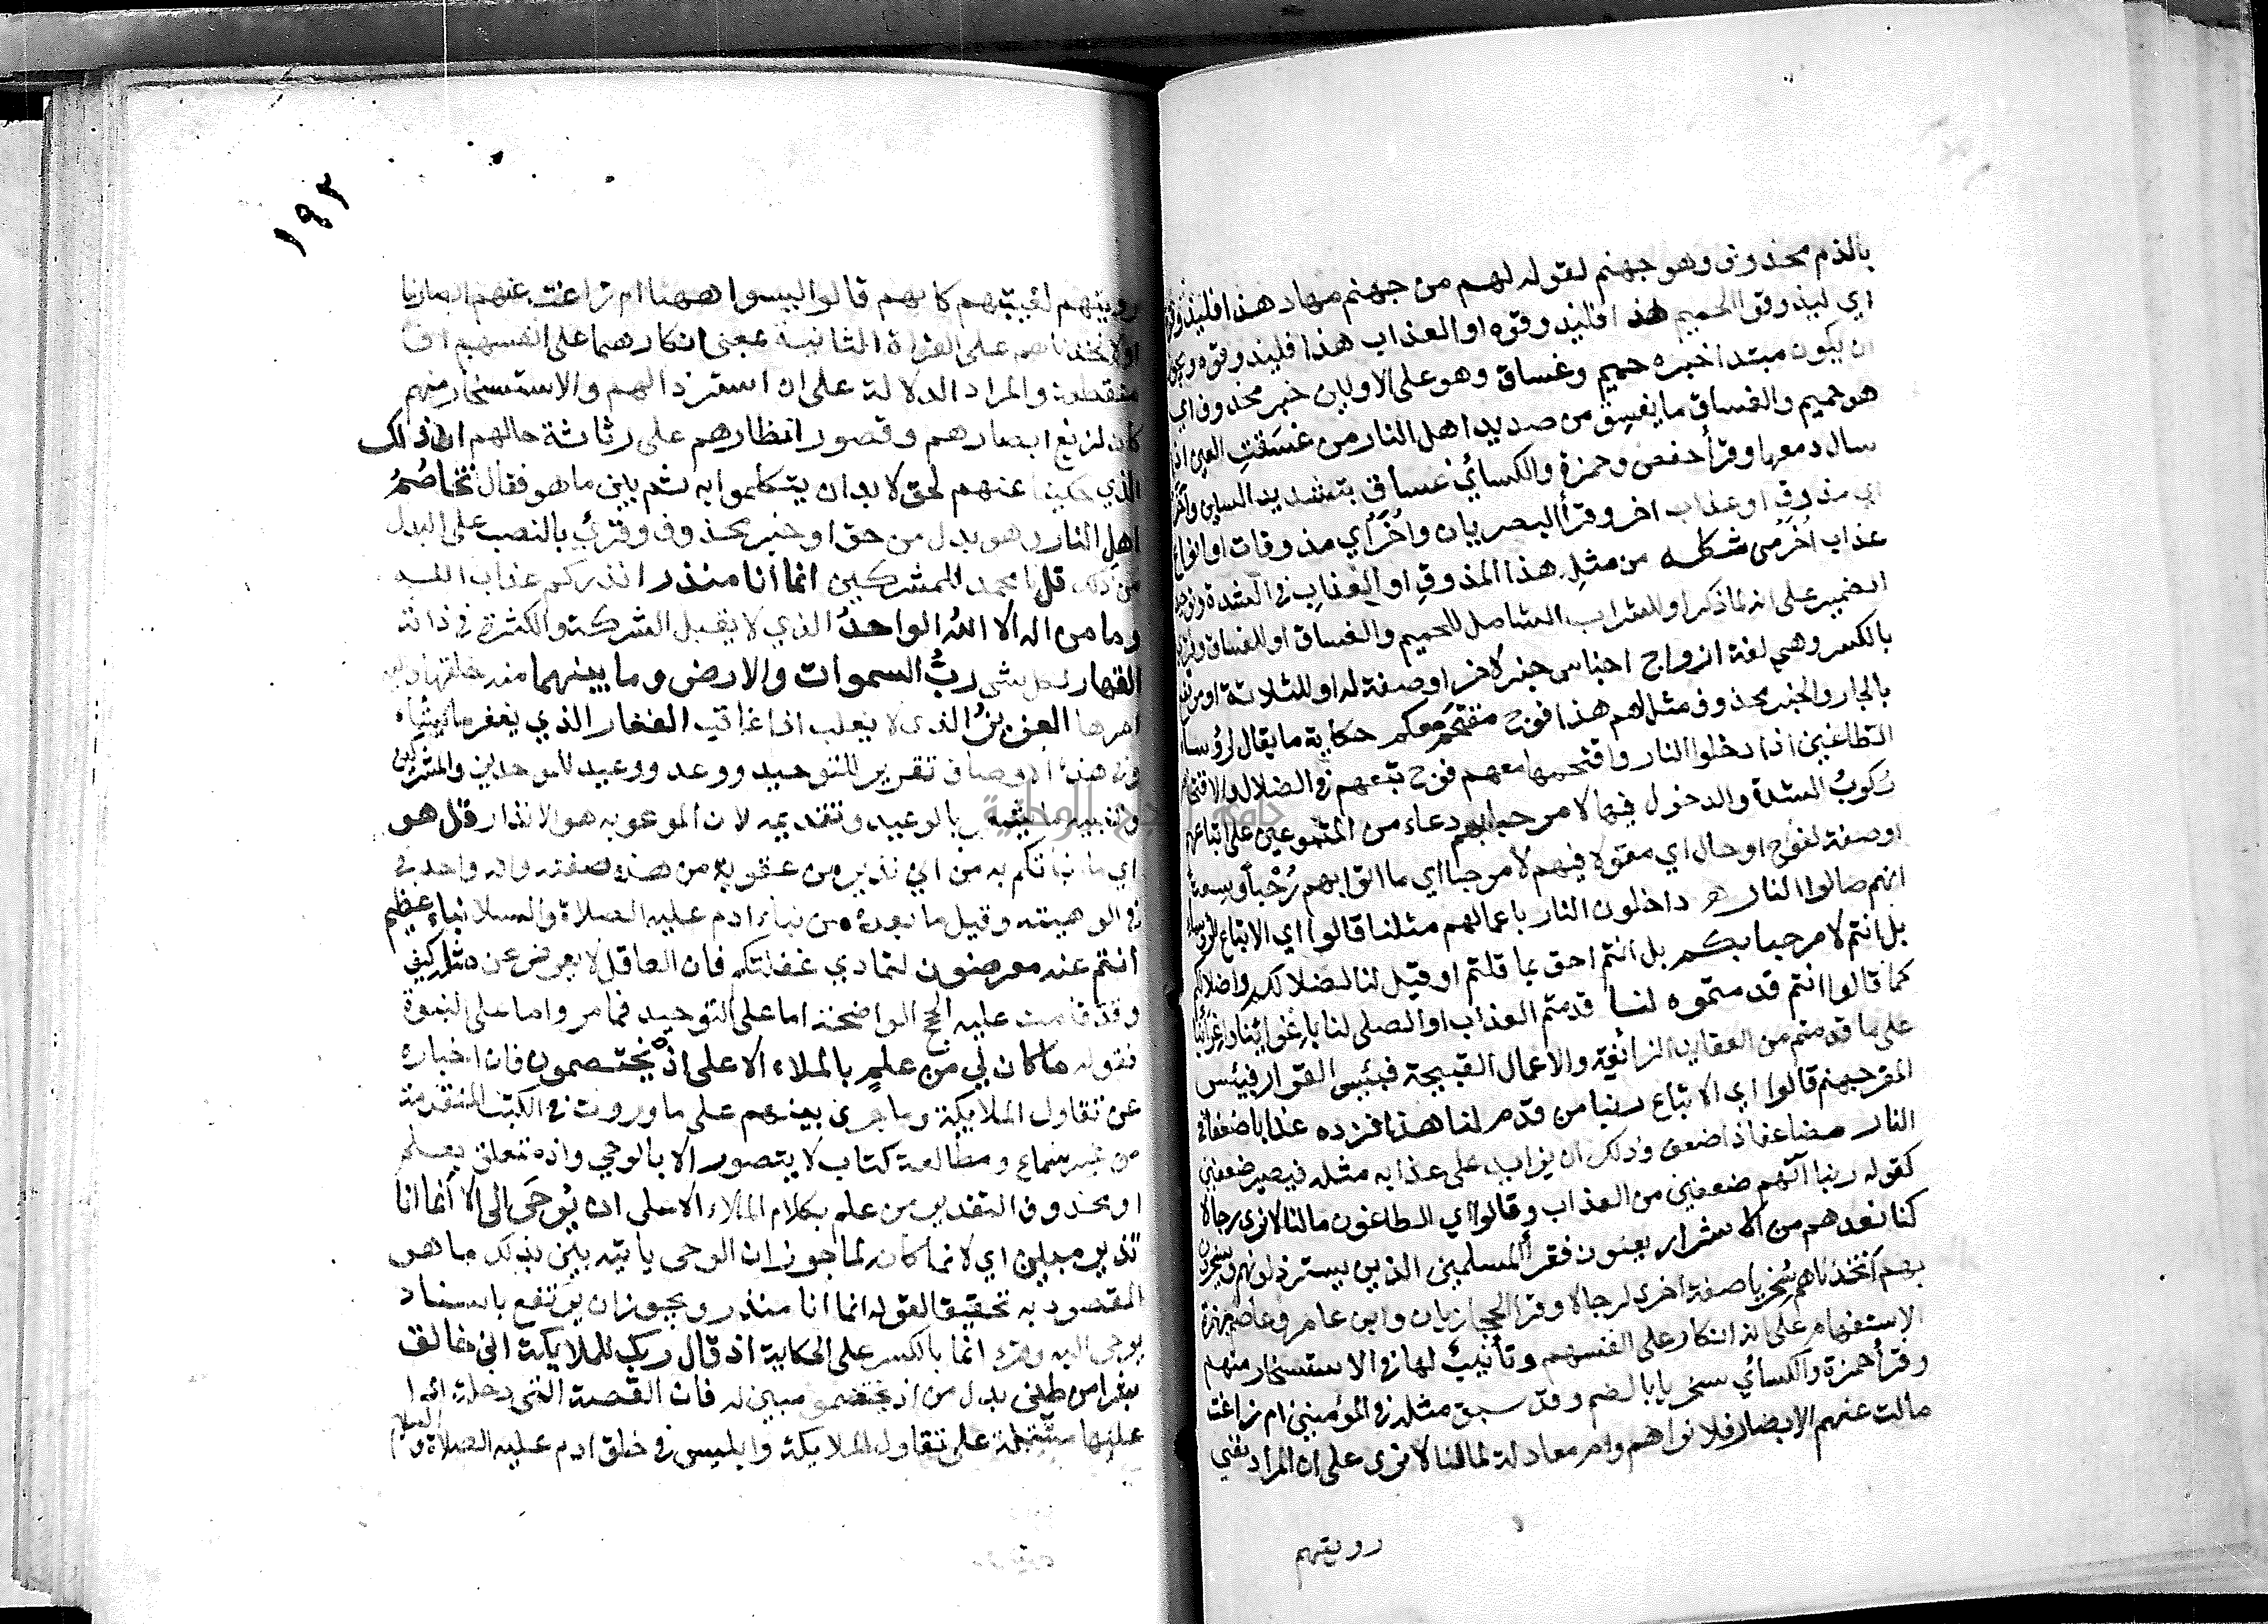 بالذم محذوف وهو جهنم لقوله لهم من جهنم مهاد هذا فليذوقوه
اي ليذوقوا الحميم هذا فليذوقوه او العذاب هذا فليذوقوه ويجوز
ان يكون مبتدا خبره حميم وغساق وهو على الاولين خبر محذوف اي
هو حميم والغساق ما يغسق من صديد اهل النار من غسَقتِ العين اذا
سال دمعها وقرأ حفص وحمزة والكسائي غساق بتشديد السين وآخر
اي مذوق او عذاب اخر وقرأ البصريان واُخَرُ اي مذوقات او انواع
عذاب اُخَر من شكله من مثلِ هذا المذوق او العذاب في الشدة وتوحيد
الضمير على انه لما ذكر او للشراب الشامل للحميم والغساق او للغساق وقرئ
بالكسر وهي لغة ازواج اجناس خبر لاخر او صفة له او للثلاثة او مرتفع
بالجار والخبر محذوف مثل لهم هذا فوج مقتحم معكم حكاية ما يقال لرؤساء
الطاغين اذا دخلوا النار واقتحمها معهم فوج تبعهم في الضلال والاقتحام
رُكوبُ الشدة والدخول فيها لا مرحبا بهم دعاء من المتبوعين على اتباعهم
او صفة لفوج او حال اي مقولا فيهم لا مرحبا اي ما اتوا بهم رُحْباً وسعة
انهم صالوا النار داخلون النار باعمالهم مثلنا قالوا اي الاتباع للرؤساء
بل انتم لا مرحبا بكم بل انتم احق بما قلتم او قيل لنا لضلالكم واضلالكم
كما قالوا انتم قدمتموه لنا قدمتم العذاب او الصلى لنا باغوائنا واغرائنا
على ما قدمتم من العقايد الزائغة والاعمال القبيحة فبئس القرار فبئس
المقر جهنم قالوا اي الاتباع ربنا من قدم لنا هذا فزده عذابا ضعفا في
النار مضاعفا ذا ضعف وذلك ان يزايد على عذابه مثله فيصير ضعفين
كقوله ربنا آتهم ضعفين من العذاب وقالوا اي الطاغون ما لنا لا نرى رجالا
كنا نعدهم من الاشرار يعنون فقرأ المسلمين الذين يسترذلونهم ويسخرون
بهم اَتخذناهم سُخريا صفة اخرى لرجالا وقرا الحجازيان وابن عامر وعاصم بهمزة
الاستفهام على انه انكار على انفسهم وتأنيث لها في الاستسخار منهم
وقرأ حمزة والكسائي سخريا بالضم وقد سبق مثله في المؤمنين ام زاغت
مالت عنهم الابصار فلا نراهم وام معادلة لما لنا لا نرى على ان المراد نفي
رويتهم
١٩٢
رويتهم لغيبتهم كانهم قالوا ليسوا ههنا ام زاغت عنهم ابصارنا
او لاتخذناهم على القراة الثانية بمعنى انكارهما على انفسهم او
منقطعة والمراد الدلالة على ان استرذالهم والاستسخار منهم
كان لزيغ ابصارهم وقصور انظارهم على رثاثة حالهم ان ذلك
الذي حكينا عنهم لحق لا بد ان يتكلموا به ثم بين ما هو فقال تخاصُمُ
اهلِ النار وهو بدل من حق او خبر محذوف وقرئ بالنصب على البدل
من ذلك قل يا محمد للمشركين انما انا منذر انذركم عذاب الله
وما من اله الا اللهُ الواحدُ الذي لا يقبل الشركة والكثرة في ذاته
القهار لكل شي ربُّ السموات والارض وما بينهما منه خلقها واليه
امرها العزيزُ الذي لا يغلب اذا عاقب الغفار الذي يغفر ما يشاء
وفي هذه الاوصاف تقرير للتوحيد ووعد ووعيد للموحدين والمشركين
وتثنية ما يشعر بالوعيد وتقديمه لان المدعو به هو الانذار قل هو
اي ما انبأتكم به من اني نذير من عقوبة من هذه صفته وانه واحد في
في الوهيته وقيل ما بعده من نباء ادم عليه الصلاة والسلا نباء عظيم
انتم عنه معرضون لتمادي غفلتكم فان العاقل لا يعرض عن مثله كيف
وقد قامت عليه الحجج الواضحة اما على التوحيد فما مر واما على النبوة
فقوله ما كان لي من علمٍ بالملاء الاعلى اذ يختصمون فان اخباره
عن تقاول الملايكة وما جرى بينهم على ما وردت في الكتب المتقدمة
من غير سماع ومطالعة كتاب لا يتصور الا بالوحي واذ متعلق بعلم
او محذوف التقدير من علم بكلام الملاء الاعلى ان يُوحَى الى الا أنما انا
نذير مبين اي لانما كان لما جوز ان الوحي ياتيه بين بذلك ما هو
المقصود به تحقيقا لقوله انما انا منذر ويجوز ان يرتفع باسناد
يوحى اليه وقرئ انما بالكسر على الحكاية اذ قال ربك للملايكة اني خالق
بشرا من طين بدل من اذ يختصمون مبين له فان القصة التي دخلت اذ
عليها مشتملة على تقاول الملايكة وابليس في خلق ادم عليه الصلاة والسلام